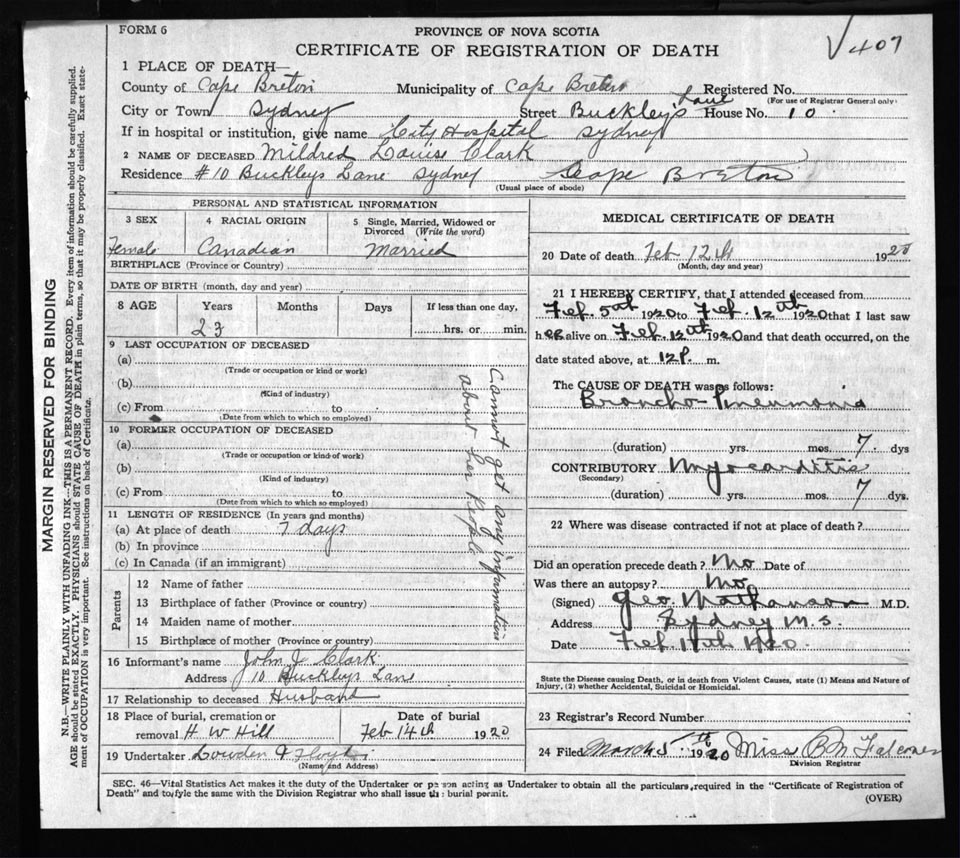 FORM 6
PROVINCE OF NOVA SCOTIA
CERTIFICATE OF REGISTRATION OF DEATH
√407
1 PLACE OF DEATH—
County of Cape Breton Municipality of Cape Breton Registered No.
(For use of Registrar General only)
City or Town Sydney Street Buckley's Lane House No. 10
If in hospital or institution, give name City Hospital Sydney
2 NAME OF DECEASED Mildred Louise Clark
Residence #10 Buckleys Lane Sydney Cape Breton
(Usual place of abode)
PERSONAL AND STATISTICAL INFORMATION
3 SEX 4 RACIAL ORIGIN 5 Single, Married, Widowed or Divorced (Write the word)
Female Canadian Married
BIRTHPLACE (Province or Country)
DATE OF BIRTH (month, day and year)
8 AGE Years Months Days If less than one day,
23 hrs. or min.
9 LAST OCCUPATION OF DECEASED
(a)
(Trade or occupation or kind or work)
(b)
(Kind of industry)
(c) From to
(Date from which to which so employed)
10 FORMER OCCUPATION OF DECEASED
(a)
(Trade or occupation or kind of work)
(b)
(Kind of industry)
(c) From to
(Date from which to which so employed)
11 LENGTH OF RESIDENCE (In years and months)
(a) At place of death 7 days
(b) In province
(c) In Canada (if an immigrant)
Cannot get any information
about her People
Parents
12 Name of father
13 Birthplace of father (Province or country)
14 Maiden name of mother
15 Birthplace of mother (Province or country)
16 Informant's name John J Clark
Address 10 Buckleys Lane
17 Relationship to deceased Husband
18 Place of burial, cremation or removal H W Hill Date of burial Feb 14th 1920
19 Undertaker Lowden & Floyd
(Name and Address)
MEDICAL CERTIFICATE OF DEATH
20 Date of death Feb 12th 1920
(Month, day and year)
21 I HEREBY CERTIFY, that I attended deceased from
Feb. 5th 1920 to Feb. 12th 1920 that I last saw
her alive on Feb. 12th 1920 and that death occurred, on the
date stated above, at 12 P. m.
The CAUSE OF DEATH was as follows:
Broncho-Pneumonia
(duration) yrs. mos. 7 dys
CONTRIBUTORY Myocarditis
(Secondary)
(duration) yrs. mos. 7 dys.
22 Where was disease contracted if not at place of death?
Did an operation precede death? No Date of
Was there an autopsy? No
(Signed) Geo. M.D.
Address Sydney N.S.
Date Feb. 1920.
State the Disease causing Death, or in death from Violent Causes, state (1) Means and Nature of
Injury, (2) whether Accidental, Suicidal or Homicidal.
23 Registrar's Record Number
24 Filed March 5th 1920 Miss B M Falconer
Division Registrar
SEC. 46—Vital Statistics Act makes it the duty of the Undertaker or person acting as Undertaker to obtain all the particulars required in the "Certificate of Registration of
Death" and to file the same with the Division Registrar who shall issue the burial permit.
(OVER)
MARGIN RESERVED FOR BINDING
N.B.—WRITE PLAINLY WITH UNFADING INK—THIS IS A PERMANENT RECORD. Every item of information should be carefully supplied.
AGE should be stated EXACTLY. PHYSICIANS should STATE CAUSE OF DEATH in plain terms, so that it may be properly classified. Exact statement of OCCUPATION is very important. See instructions on back of Certificate.